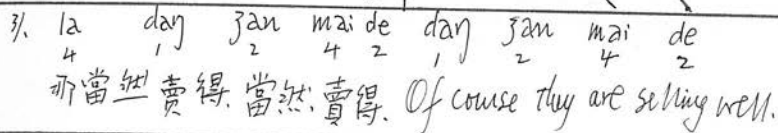 31. la daŋ ʒan mai de daŋ ʒan mai de
4 1 2 4 2 1 2 4 2
那當然賣得. 當然, 賣得. Of course they are selling well.